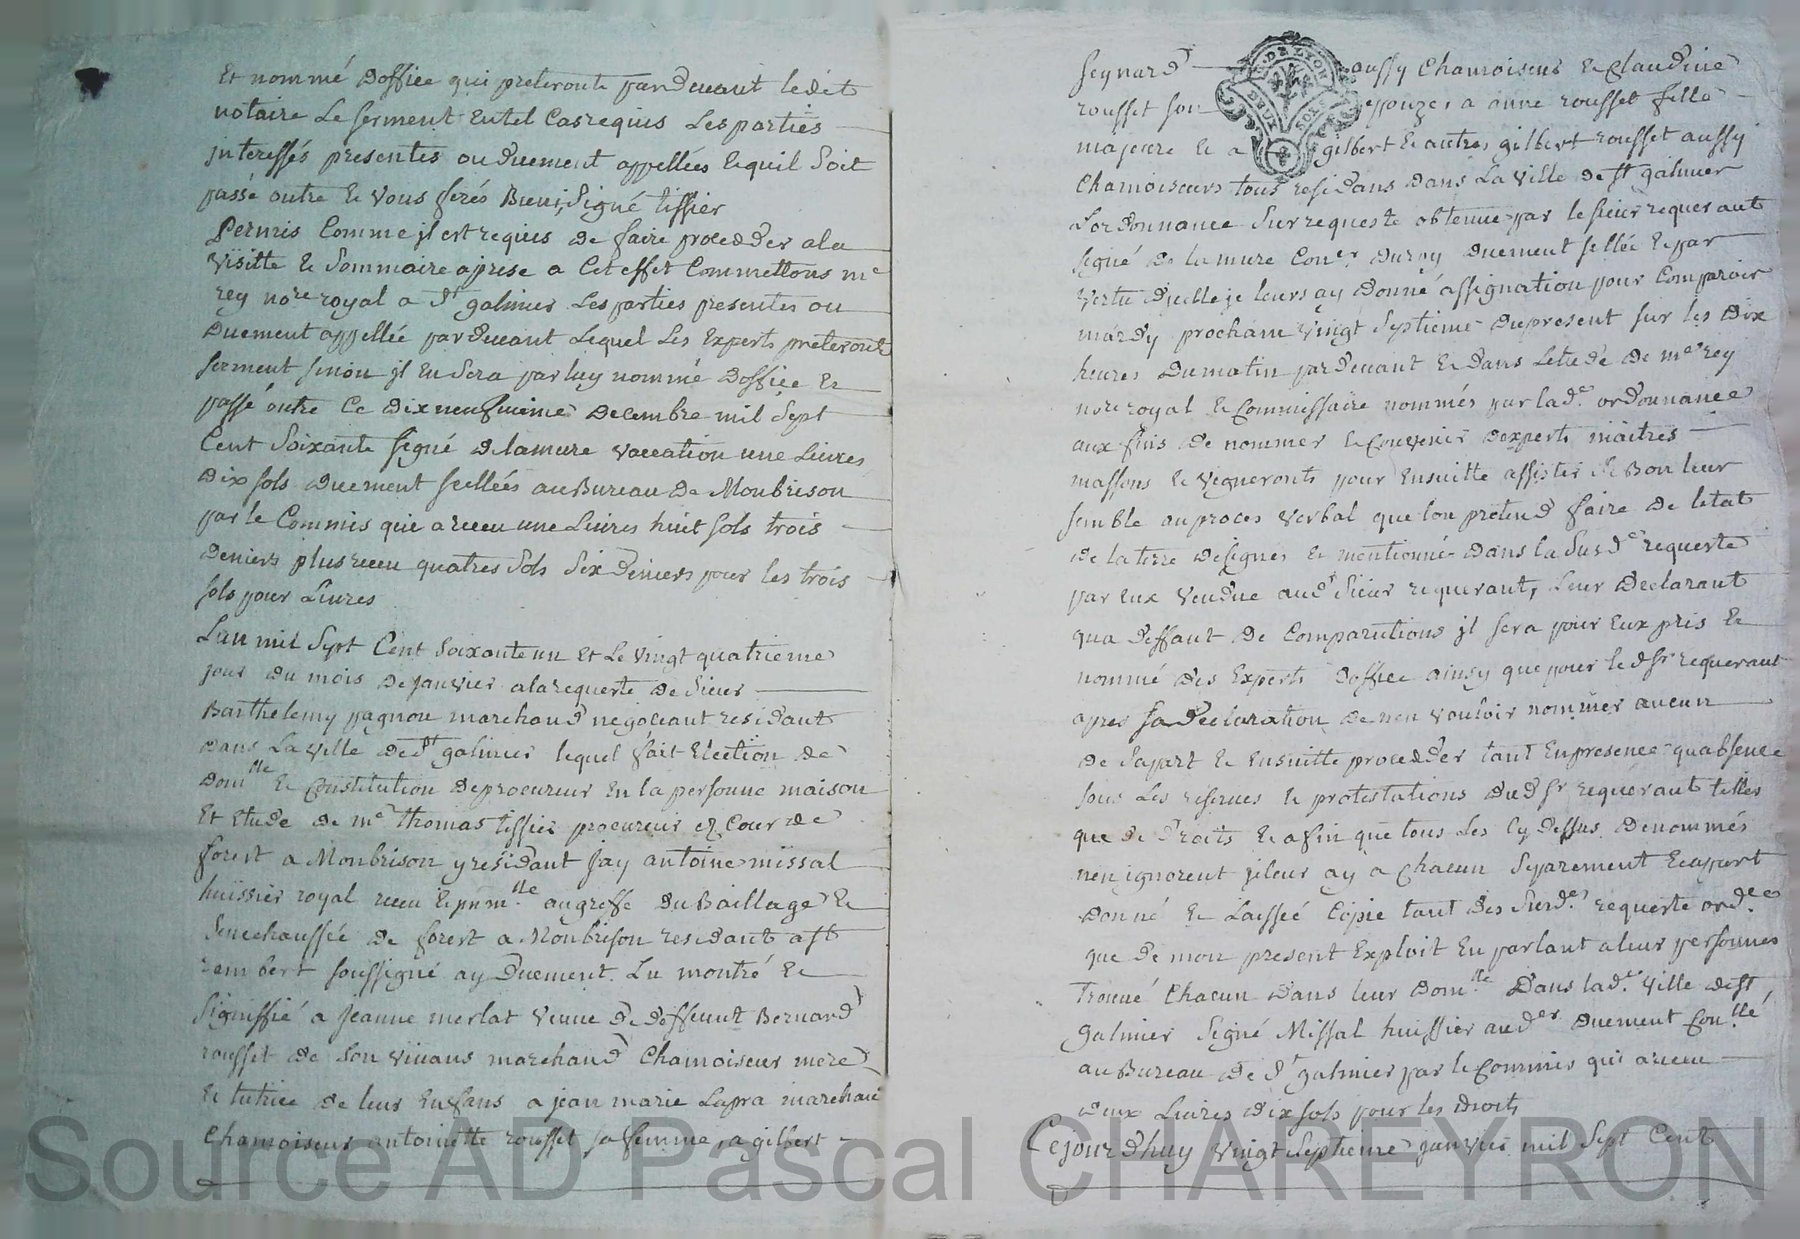 Et nommé Doffice qui preteronte pardeuant ledit
notaire Le serment Entel Cas requis Les parties
jnteressés presentes ou Duement appellées Equil soit
passé outre Et Vous ferés Bien, Signé tissier
Permis Comme jl est requis de faire procedder a la
Visitte Et Sommaire aprise a Cet effet Commettons me
rey nore royal a St galmier Les parties presentes ou
Duement appellée pardeuant Lequel Les Experts preteront
serment sinon jl En Sera par luy nommé Doffice Et
passé outre Ce Dix neufuieme Decembre mil Sept
Cent Soixante signé Delamure Vaccation une Liures
Dix sols Duement scellées au Bureau De Monbrison
par le Commis qui a receu une Liures huit sols trois
deniers plus receu quatres Sols Six Deniers pour les trois
sols pour Liures
Lan mil Sept Cent Soixante un Et Le Vingt quatrieme
jour du mois De janvier a la requeste De Sieur
Barthelemy pagnon marchand negociant residant
dans La Ville de St galmier lequel fait Election de
Domlle Et Constitution De procureur En la personne maison
Et Etude de me thomas tissier procureur Ez Cour de
forest a Monbrison y residant jay antoine missal
huissier royal receu Et jmmlle au greffe Du Baillage Et
Senechaussée de forest a Monbrison residant a St
rembert soussigné ay Duement Lu montré Et
Signiffié a jeanne merlat Veuue De deffeunt Bernard
rousset de Son Viuans marchand Chamoiseur mere
Et tutrice de leur Enfans a jean marie Lapra marchand
Chamoiseur antoinette rousset sa femme, a gilbert
seynard aussy Chamoiseur Et Claudine
rousset son epouzes a anne rousset fille
majeure Et a gilbert Et autres gilbert rousset aussy
Chamoiseurs tous residans dans La Ville de St galmier
Lordonnance Sur requeste obtenue par le sieur requerant
signé De lamure Coner Du roy Duement sellée Et par
Vertu Duelle je leurs ay Donné assignation pour Comparoir
mardy prochain Vingt Septieme Du present sur les Dix
heures Du matin pardeuant Et dans Letude De me rey
nore royal Et Commissaire nommés par lade ordonnance
aux fins de nommer Et Convenir dexperts maitres
massons Et Vignerons pour Ensuitte assister Si Bon leur
semble au proces Verbal que lon pretend faire De letat
de la terre Designés Et mentionné dans la Susde requeste
par Eux Vendue aud Sieur requerant, Leur Declarant
qua Deffaut De Comparutions jl sera pour Eux pris Et
nommé des Experts Doffice ainsy que pour le d sr requerant
apres sa declaration de nen vouloir nommer aucun
de Sa part Et Ensuitte procedder tant En presence quabsence
sous Les reserues Et protestations Dud sr requerant telles
que de Droits Et afin que tous Les Cy Dessus Denommés
nen jgnorent je leur ay a Chacun Separement Et apart
Donné Et Laissée Copie tant des Surde requeste ordce
que de mon present Exploit En parlant a leur personnes
Trouué Chacun Dans leur Domlle Dans lade Ville de St
galmier Signé Missal huissier auder Duement Contllé
au Bureau De St galmier par le Commis qui a receu
deux Liures dix sols pour les droits
Cejourdhuy Vingt Septieme janvier mil Sept Cent
G. DE LYON
DEUX SOLS
Source AD Pascal CHAREYRON